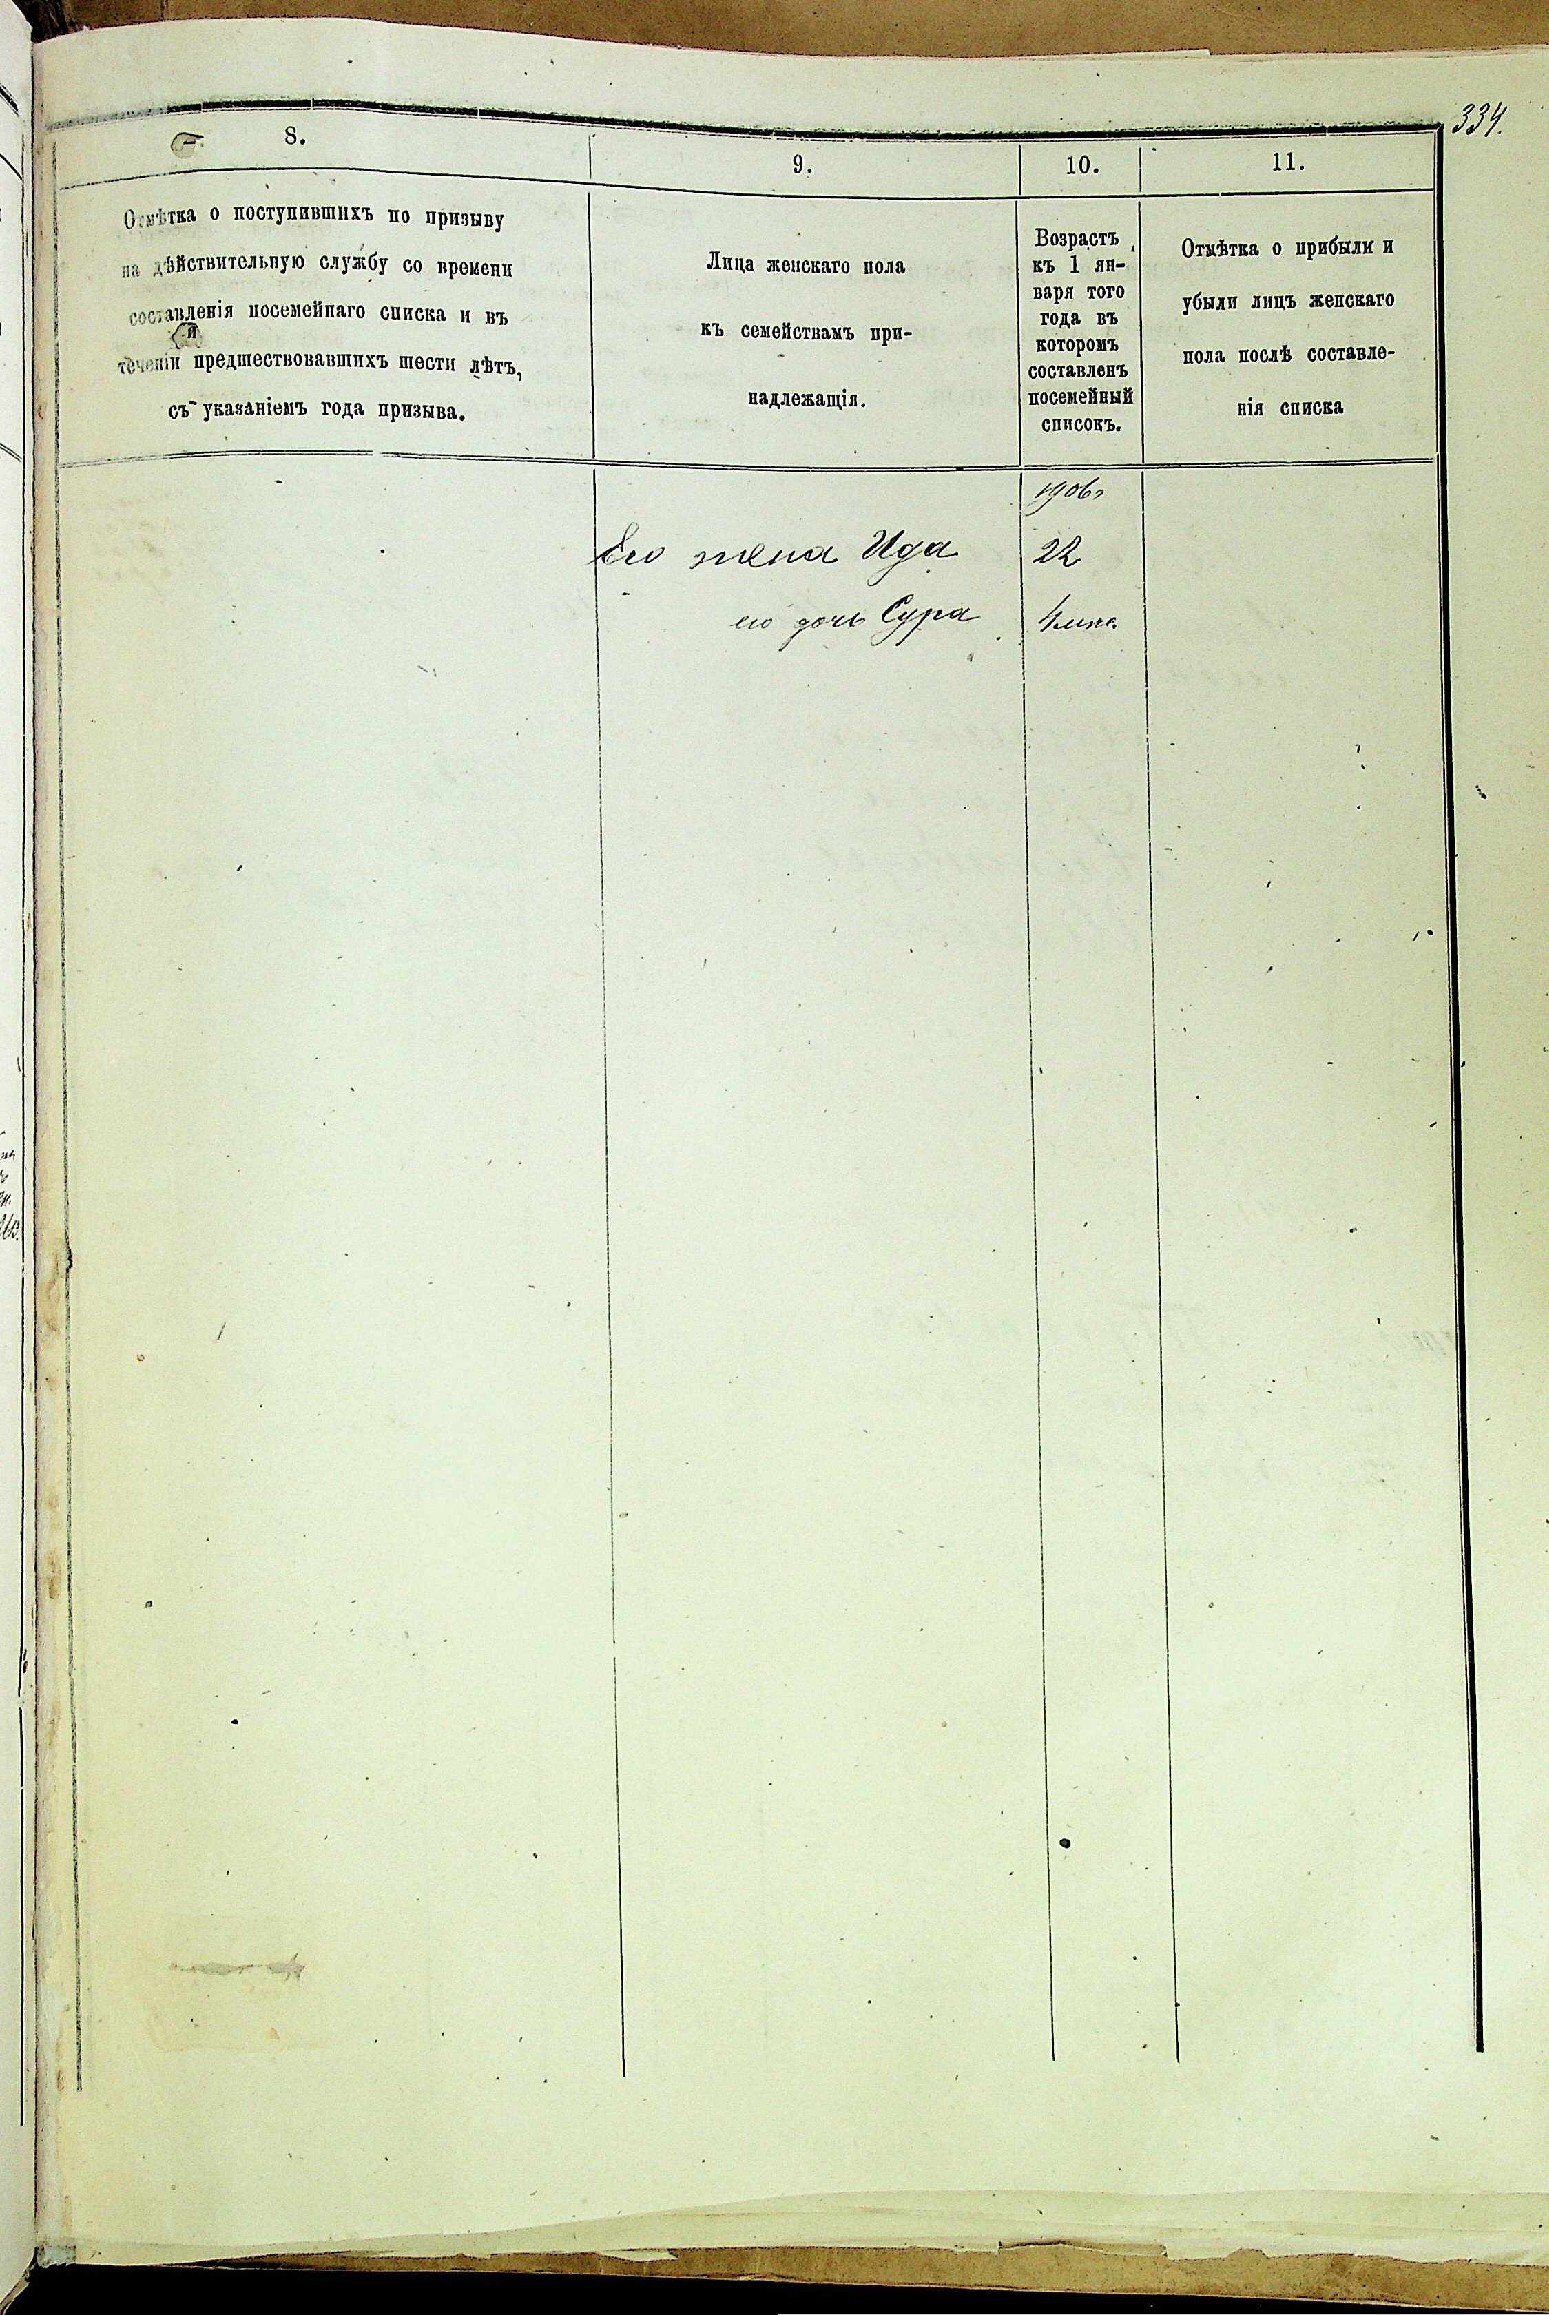 334.
8.
9.
10.
11.
Отмѣтка о поступившихъ по призыву
на дѣйствительную службу со времени
составленія посемейнаго списка и въ
теченіи предшествовавшихъ шести лѣтъ,
съ указаніемъ года призыва.
Лица женскаго пола
къ семействамъ при-
надлежащія.
Возрастъ
къ 1 ян-
варя того
года въ
которомъ
составленъ
посемейный
списокъ.
Отмѣтка о прибыли и
убыли лицъ женскаго
пола послѣ составле-
нія списка
1906г
Его жена Ида 22
его дочь Сура 4 мѣс.